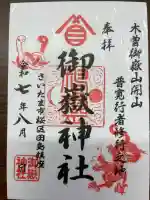 木曽御嶽山開山
普寛行者修行之地
奉拝
御嶽神社
さいたま市桜区田島鎮座
令和七年八月